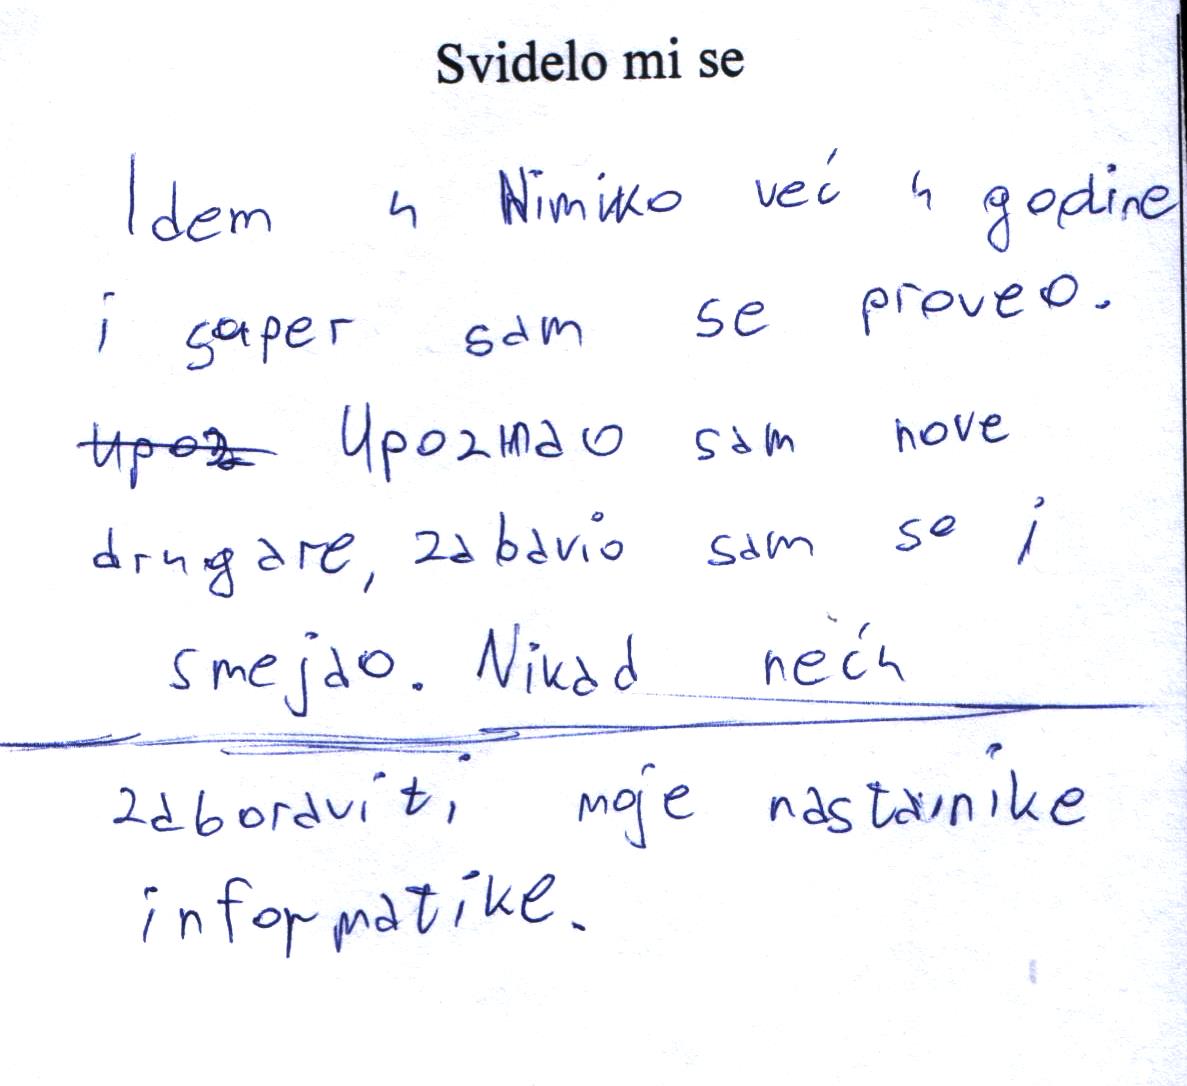 Svidelo mi se
Idem u Nimiko već 4 godine
i super sam se proveo.
Upoz Upoznao sam nove
drugare, zabavio sam se i
smejao. Nikad neću
zaboraviti moje nastavnike
informatike.